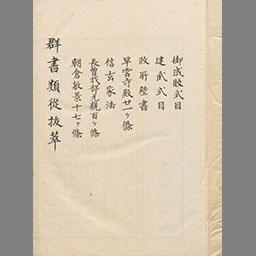 御成敗式目
建武式目
政所壁書
早雲寺殿廿一ヶ條
信玄家法
長曽我部元親百ヶ條
朝倉敏景十七ヶ條
群書類從抜萃